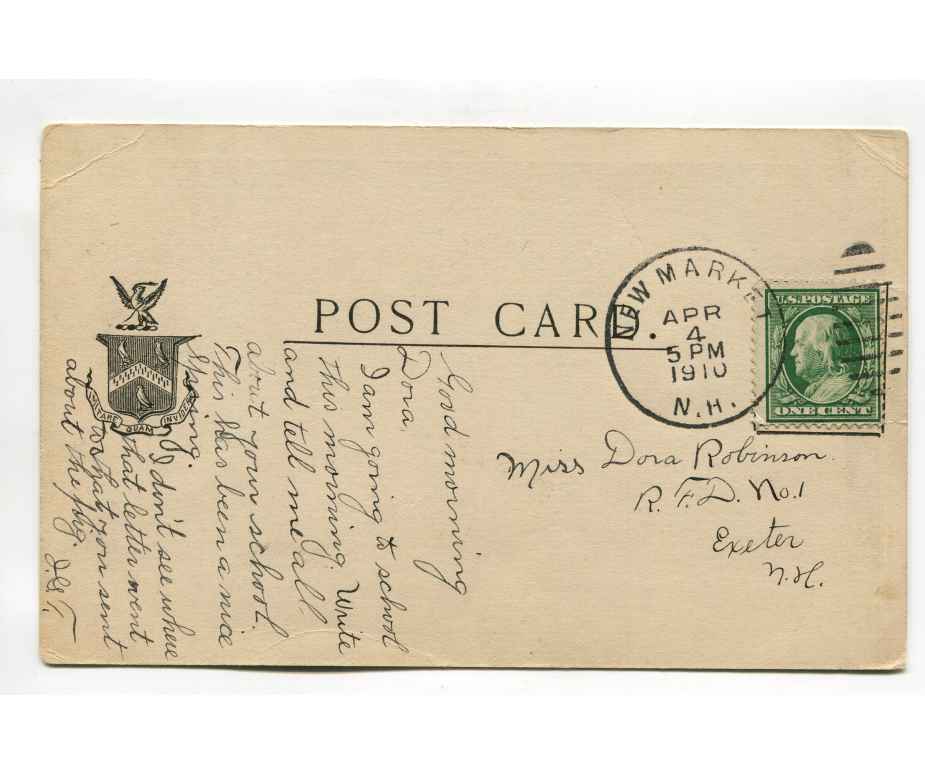 POST CARD.
NEW MARKET
APR
4
5 PM
1910
N.H.
U.S. POSTAGE
ONE CENT
Miss Dora Robinson.
R.F.D. No. 1
Exeter
N.H.
Good morning
Dora
I am going to school
this morning. Write
and tell me all
about your school.
This has been a nice
Spring.
I don't see where
that letter went
to that you sent
about the
QUAM